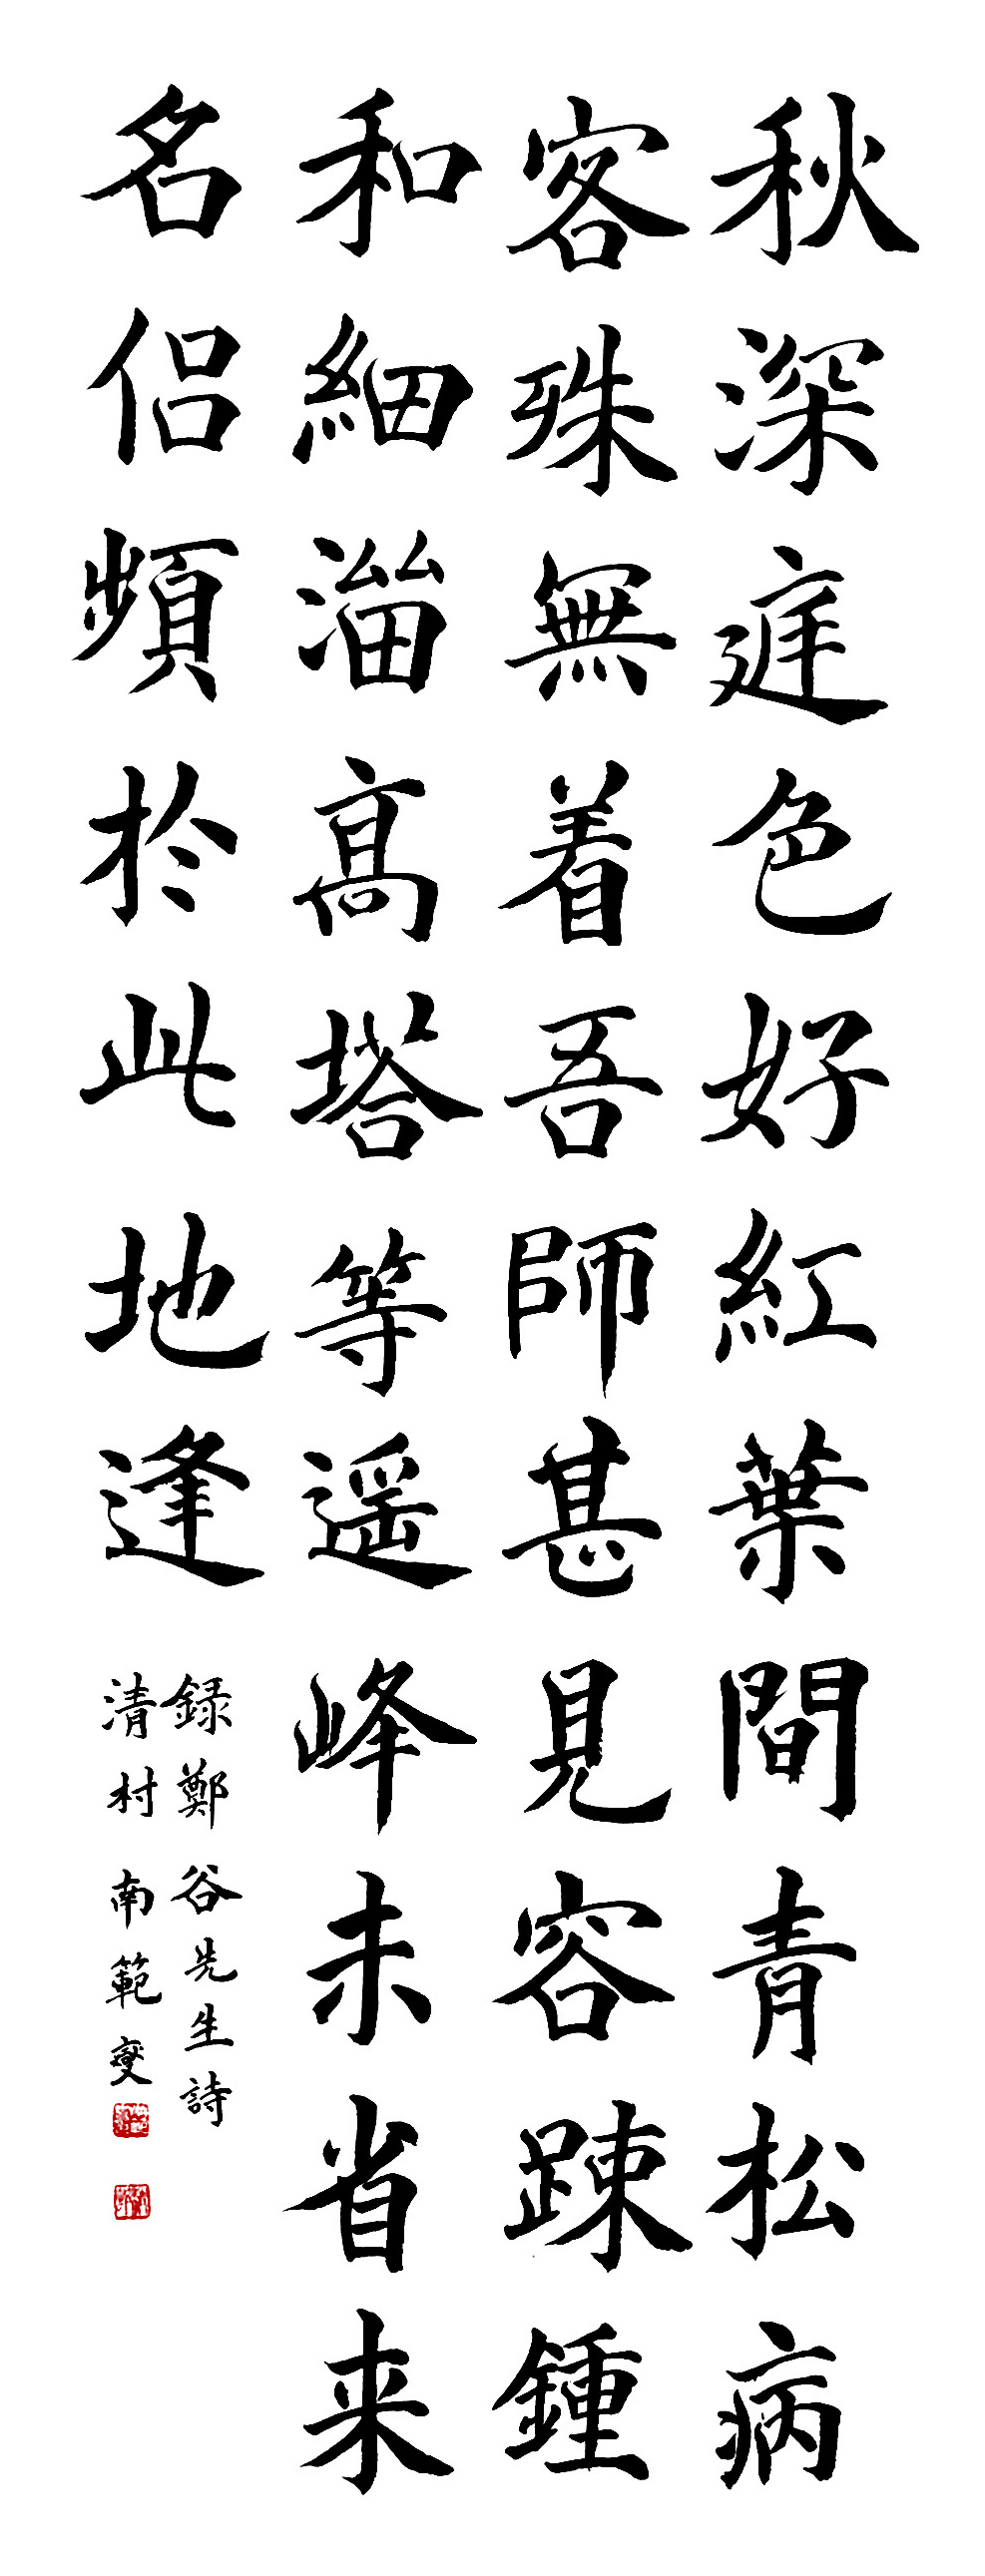 秋深庭色好紅葉間青松病
客殊無着吾師甚見容踈鍾
和細溜高塔等遥峰未省来
名侣頻於此地逢
録鄭谷先生詩
清村南範燮